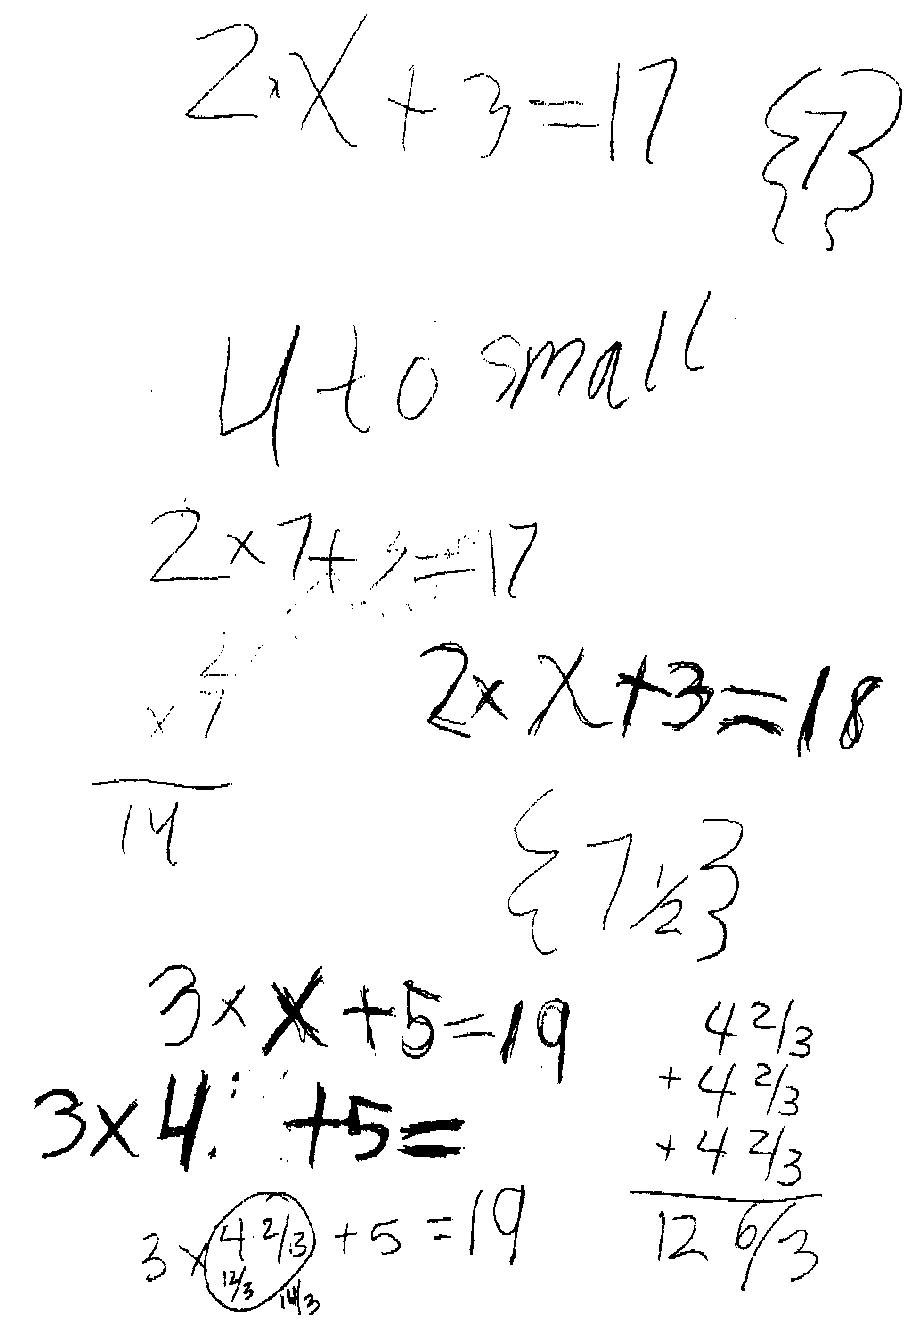 2 x X + 3 = 17 {7}
4 to small
2 x 7 + 3 = 17
2
x 7
14
2 x X + 3 = 18
{7 1/2}
3 x X + 5 = 19
3 x 4 + 5 =
3 x 4 2/3 + 5 = 19
12/3 14/3
4 2/3
+ 4 2/3
+ 4 2/3
12 6/3